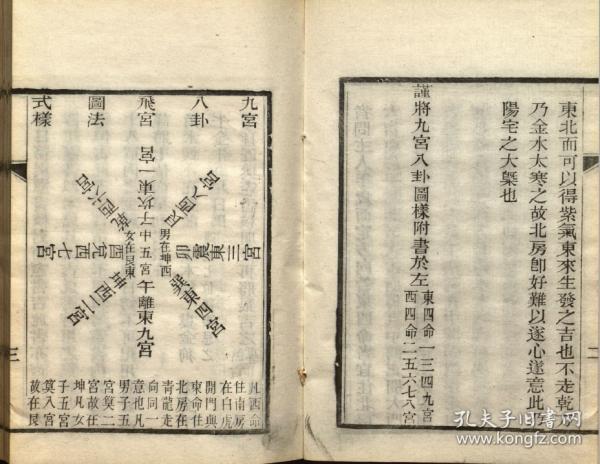 東北而可以得紫氣東來生發之吉也不走乾方
乃金水太寒之故北房卽好難以遂心達意此乃
陽宅之大槩也
謹將九宮八卦圖樣附書於左
東四命一三四九宮
西四命二五六七八宮
二
九宮
八卦
飛宮
圖法
式樣
子坎東一宮
艮西八宮
卯震東三宮
巽東四宮
午離東九宮
坤西二宮
酉兌西七宮
乾西六宮
男在坤西
中五宮
女在艮東
凡西命
住南房
在白虎
開門與
東命住
北房在
青龍走
向同一
意也凡
男子五
宮奠二
宮故在
坤凡女
子五宮
奠入宮
故在艮
三
孔夫子旧书网
www.kongfz.com